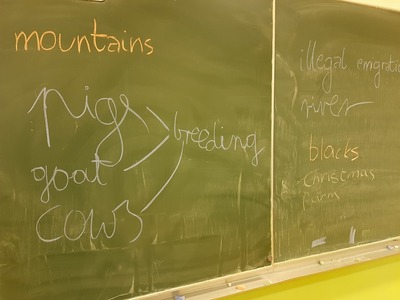 mountains
pigs
goat
cows
breeding
illegal emigration
river
blacks
christmas
farm